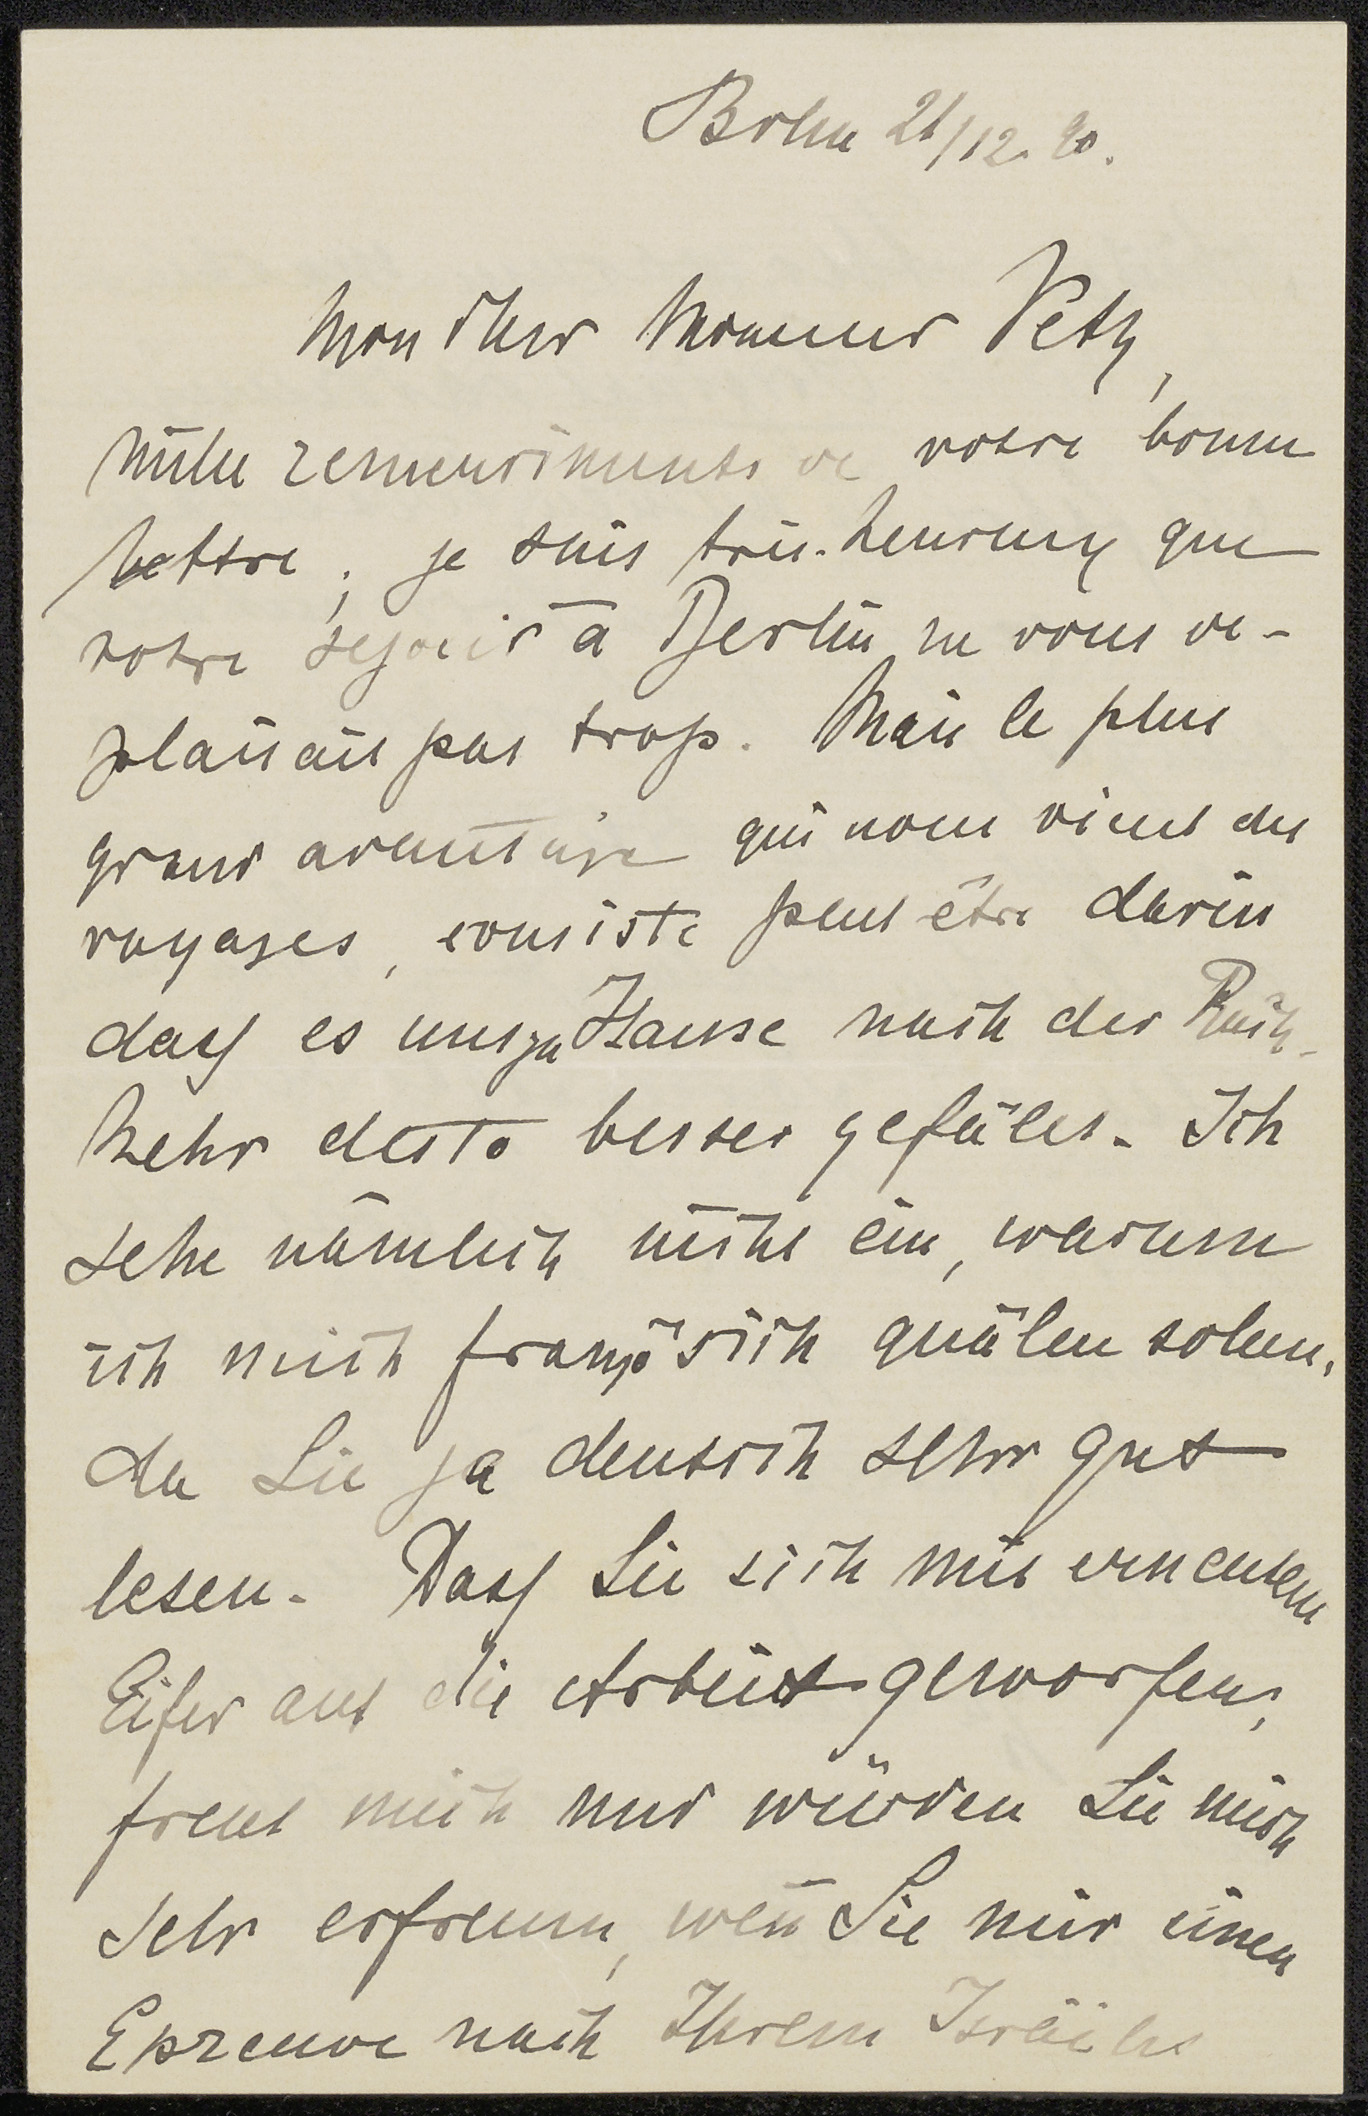 Berlin 21/12. 90.
Mon cher Monsieur Veth,
Mille remerciments de votre bonne
lettre; je suis très-heureux que
votre sejour à Berlin ne vous de-
plaisait pas trop. Mais le plus
grand avantage qui nous vient des
voyages, consiste peut être darin
dass es uns zu Hause nach der Rück-
kehr desto besser gefällt. Ich
sehe nämlich nicht ein, warum
ich mich französisch quälen sollen,
da Sie ja deutsch sehr gut
lesen. Dass Sie sich mit erneutem
Eifer auf die Arbeit geworfen,
freut mich und würden Sie mich
sehr erfreuen, wen̄ Sie mir einen
Epreuve nach Ihrem Israëls